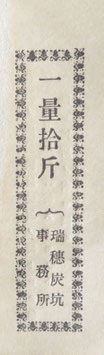 一量拾斤
瑞穗炭坑
事務所